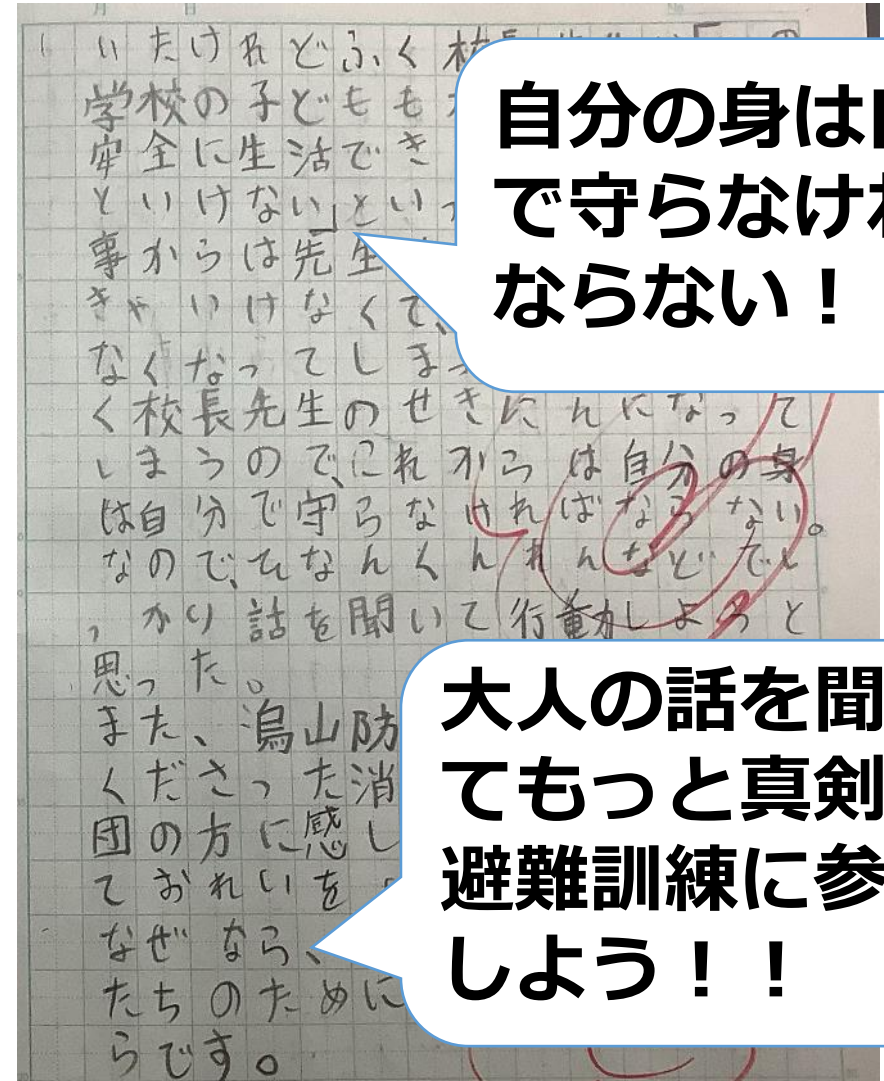 いたけれどふく校長
学校の子ども
安全に生活でき
といけない」といっ
事からは先生
きゃいけなくて、
なくなってしまっ
く校長先生のせきにんになって
しまうので、これからは自分の身
は自分で守らなければならない。
なので、ひなんくんれんなどでし
っかり話を聞いて行動しようと
思った。
また、烏山防
くださった消
団の方に感し
ておれいを
なぜなら、
たちのために
らです。
自分の身は
で守らなけ
ならない！
大人の話を聞
てもっと真剣
避難訓練に参
しよう！！